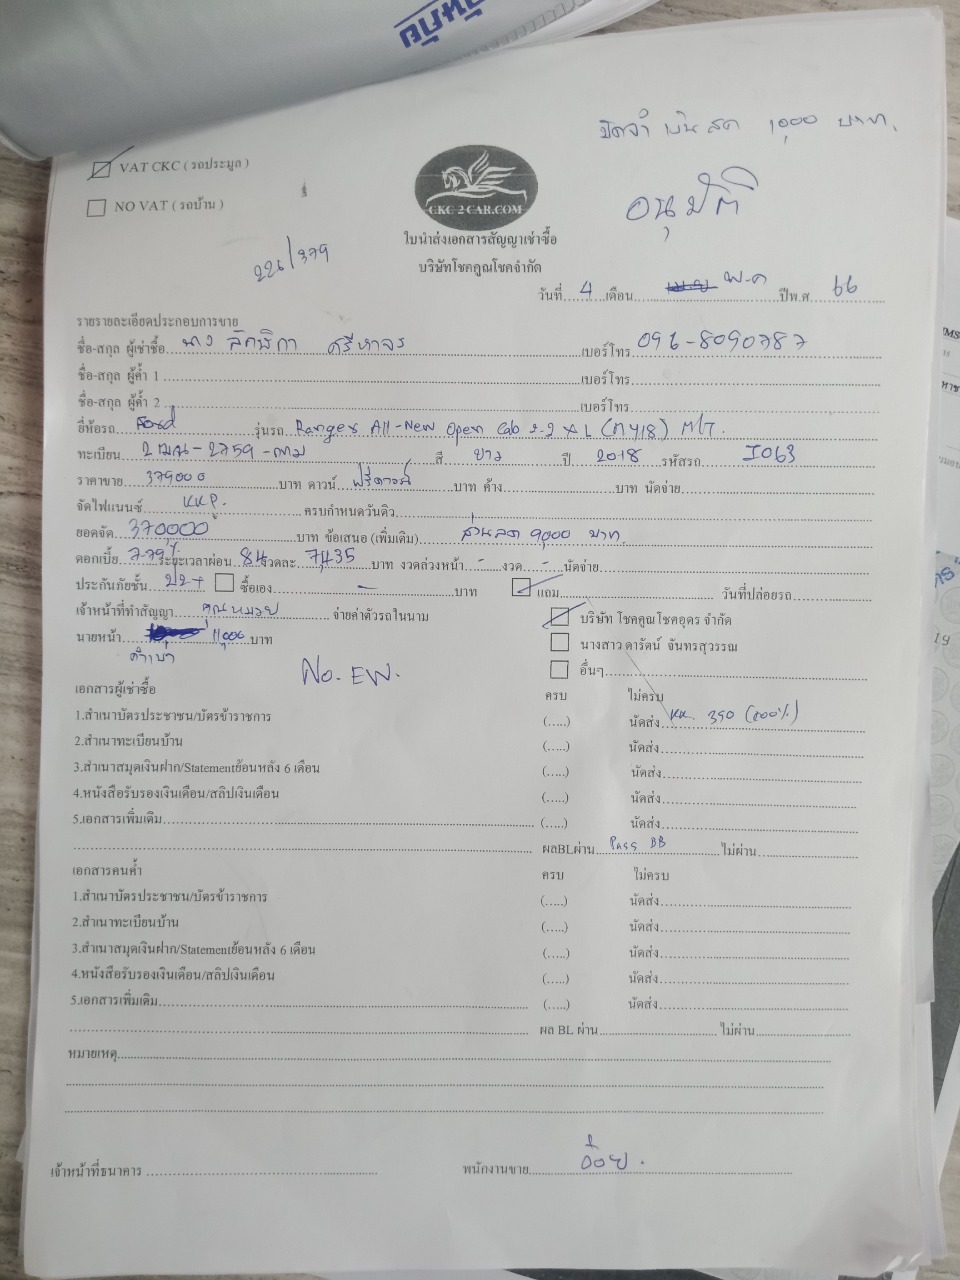 มัดจำ เงินสด 1,000 บาท.
VAT CKC ( รถประมูล )
อนุมัติ
NO VAT ( รถบ้าน )
CKC 2 CAR.COM
ใบนำส่งเอกสารสัญญาเช่าซื้อ
226/379
บริษัทโชคคูณโชคจำกัด
วันที่ 4 เดือน พ.ค ปีพ.ศ 66
รายรายละเอียดประกอบการขาย
ชื่อ-สกุล ผู้เช่าซื้อ นาง ลักษิกา ศรีหาจร เบอร์โทร 096-8090787
ชื่อ-สกุล ผู้ค้ำ 1 เบอร์โทร
ชื่อ-สกุล ผู้ค้ำ 2 เบอร์โทร
ยี่ห้อรถ Ford รุ่นรถ Ranger All-New Open Cab 2-2 XL (MY18) M/T.
ทะเบียน 2ฒน-2759-กทม สี ขาว ปี 2018 รหัสรถ I063
ราคาขาย 379000 บาท ดาวน์ ฟรีดาวน์ บาท ค้าง บาท นัดจ่าย
จัดไฟแนนซ์ KKP. ครบกำหนดวันดิว
ยอดจัด 370,000 บาท ข้อเสนอ (เพิ่มเติม) ส่วนลด 9,000 บาท.
ดอกเบี้ย 7.79% ระยะเวลาผ่อน 84 งวดละ 7,435 บาท งวดล่วงหน้า - งวด - นัดจ่าย
ประกันภัยชั้น ป2+ ซื้อเอง - บาท แถม วันที่ปล่อยรถ
เจ้าหน้าที่ทำสัญญา คุณหมวย จ่ายค่าตัวรถในนาม บริษัท โชคคูณโชคอุดร จำกัด
นายหน้า 11,000 บาท นางสาว ดารัตน์ จันทรสุวรรณ
No. EW. อื่นๆ
เอกสารผู้เช่าซื้อ ครบ ไม่ครบ
1.สำเนาบัตรประชาชน/บัตรข้าราชการ (.....) นัดส่ง KK. 350 (100%)
2.สำเนาทะเบียนบ้าน (.....) นัดส่ง
3.สำเนาสมุดเงินฝาก/Statementย้อนหลัง 6 เดือน (.....) นัดส่ง
4.หนังสือรับรองเงินเดือน/สลิปเงินเดือน (.....) นัดส่ง
5.เอกสารเพิ่มเติม (.....) นัดส่ง
ผลBLผ่าน Pass BB ไม่ผ่าน
เอกสารคนค้ำ ครบ ไม่ครบ
1.สำเนาบัตรประชาชน/บัตรข้าราชการ (.....) นัดส่ง
2.สำเนาทะเบียนบ้าน (.....) นัดส่ง
3.สำเนาสมุดเงินฝาก/Statementย้อนหลัง 6 เดือน (.....) นัดส่ง
4.หนังสือรับรองเงินเดือน/สลิปเงินเดือน (.....) นัดส่ง
5.เอกสารเพิ่มเติม (.....) นัดส่ง
ผล BL ผ่าน ไม่ผ่าน
หมายเหตุ
เจ้าหน้าที่ธนาคาร พนักงานขาย อ้อย.